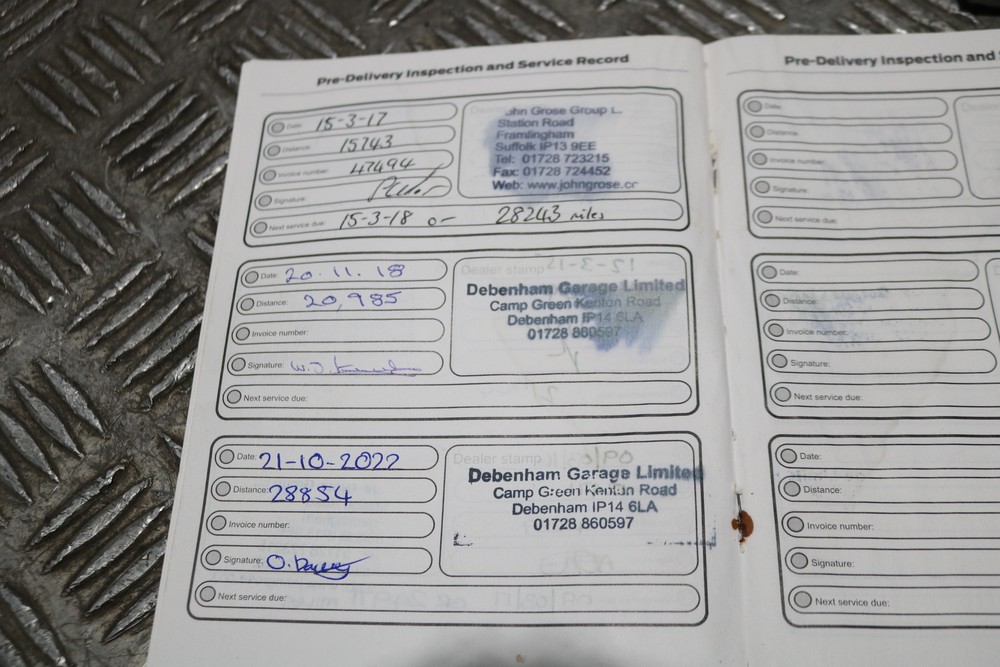 Pre-Delivery Inspection and Service Record
Date: 15-3-17
Distance: 15743
Invoice number: 47494
Signature:
Next service due: 15-3-18 or 28243 miles
John Grose Group L
Station Road
Framlingham
Suffolk IP13 9EE
Tel: 01728 723215
Fax: 01728 724452
Web: www.johngrose.cr
Date: 20.11.18
Distance: 20,985
Invoice number:
Signature: W.J.
Next service due:
Dealer stamp
Debenham Garage Limited
Camp Green Kenton Road
Debenham IP14 6LA
01728 860597
Date: 21-10-2022
Distance: 28854
Invoice number:
Signature: O.
Next service due:
Dealer stamp
Debenham Garage Limited
Camp Green Kenton Road
Debenham IP14 6LA
01728 860597
Pre-Delivery Inspection and
Date:
Distance:
Invoice number:
Signature:
Next service due:
Date:
Distance:
Invoice number:
Signature:
Next service due:
Date:
Distance:
Invoice number:
Signature:
Next service due: